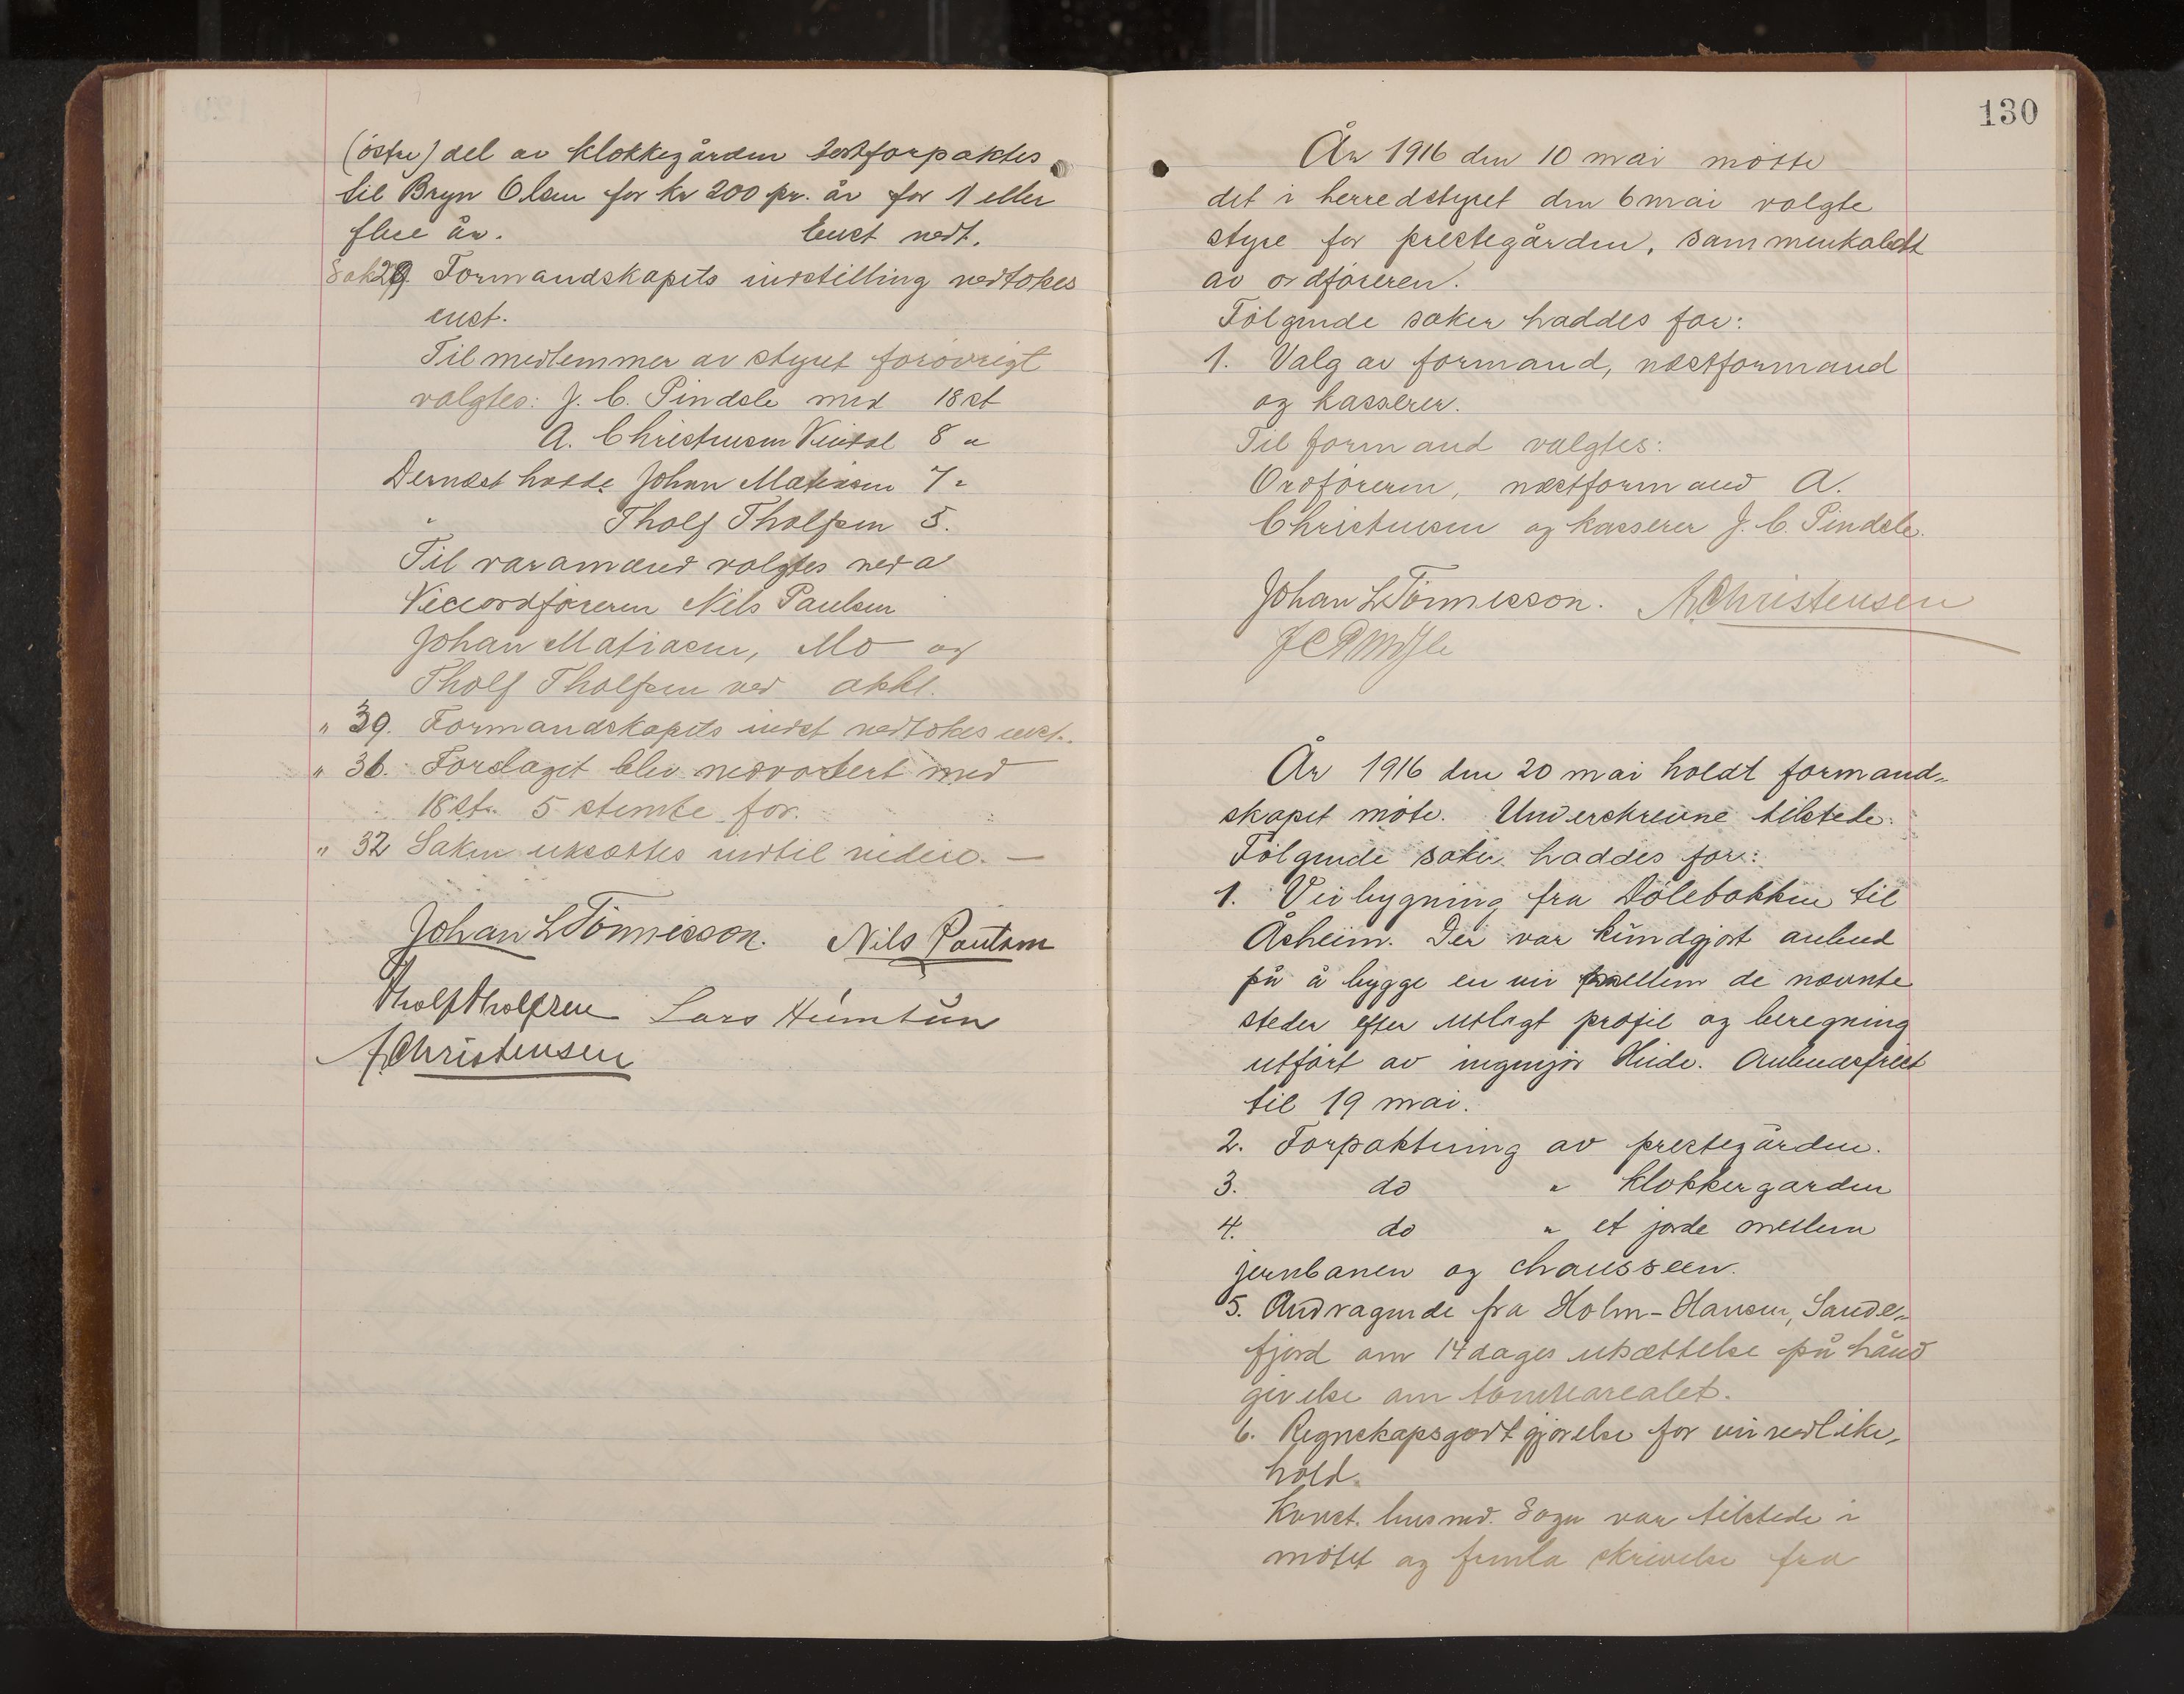 (östre) del av klokkegården bortforpaktes
til Bryn Olsen for kr 200 pr. år for 1 eller
flere år. Enst vedt.
Sak 29. Formandskapets indstilling vedtokes
enst.
Til medlemmer av styret forövrigt
valgtes: J. C. Pindsle med 18 st
A. Christensen Vindal 8 "
Dernæst hadde Johan Matiasen 7 "
" Tholf Tholfsen 5.
Til varamænd valgtes
Viceordföreren Nils Paulsen
Johan Matiasen, Mo og
Tholf Tholfsen ved akkl.
" 30. Formandskapets indst vedtokes enst.
" 31. Forslaget blev nedvotert med
18 st. 5 stemte for.
" 32 Saken utsættes indtil videre. —
Johan L Tönnesson. Nils Paulsen
Tholf Tholfsen Lars Heimtun
A. Christensen
130
År 1916 den 10 mai mötte
det i herredstyret den 6 mai valgte
styre for prestegården, sammenkaldt
av ordföreren.
Fölgende saker haddes for:
1. Valg av formand, næstformand
og kasserer.
Til formand valgtes:
Ordföreren, næstformand A.
Christensen og kasserer J. C. Pindsle.
Johan L Tönnesson. A. Christensen
J C Pindsle
År 1916 den 20 mai holdt formand-
skapet möte. Underskrevne tilstede.
Fölgende saker haddes for:
1. Veibygning fra Dölebakken til
Åsheim. Der var kundgjort anbud
på å bygge en vei mellem de nævnte
steder efter utlagt profil og beregning
utfört av ingeniör Heide. Anbudsfrist
til 19 mai.
2. Forpaktning av prestegården.
3. do " klokkergarden
4. do " et jorde mellem
jernbanen og chausseen.
5. Andragende fra Holm-Hansen, Sande-
fjord om 14 dages utsættelse på hånd
givelse om tomtearealet.
6. Regnskapsgodtgjörelse for veivedlike-
hold.
Konst. lensmd. Sogn var tilstede i
mötet og fremla skrivelse fra